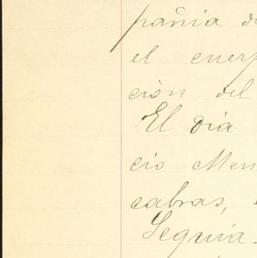 pañia d
el cuerp
ción del
El dia
cio Men
cabras,
Seguia